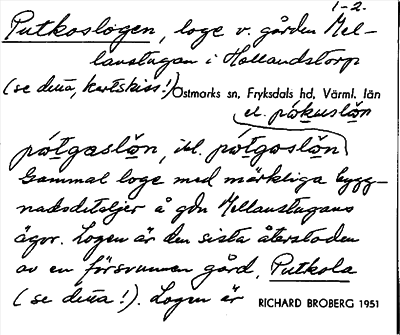 1-2.
Putkoslogen, loge v. gården Mel-
lanstugan i Hollandstorp
(se detta, kartskiss!) Östmarks sn, Fryksdals hd, Värml. län
el. pókuslǒn
pótgaslǒn, ibl. pótgoslǒn
Gammal loge med märkliga bygg-
nadsdetaljer å gdn Mellanstugans
ägor. Logen är den sista återstoden
av en försvunnen gård, Putkola
(se detta!). Logen är RICHARD BROBERG 1951